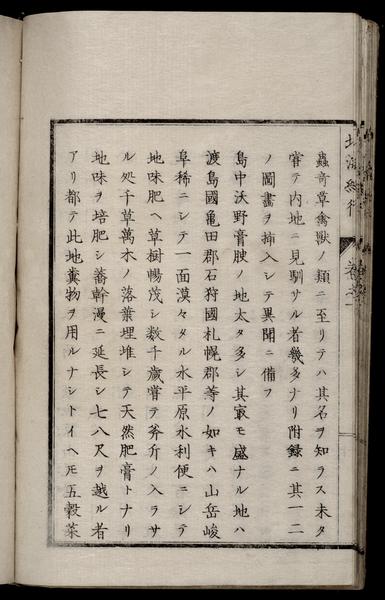 蟲奇草禽獸ノ類ニ至リテハ其名ヲ知ラス未タ
嘗テ内地ニ見馴サル者幾多ナリ附録ニ其一二
ノ圖畫ヲ挿入シテ異聞ニ備フ
島中沃野膏腴ノ地太タ多シ其最モ盛ナル地ハ
渡島國亀田郡石狩國札幌郡等ノ如キハ山岳峻
阜稀ニシテ一面漠々タル水平原水利便ニシテ
地味肥ヘ草樹暢茂シ数千歳嘗テ斧斤ノ入ラサ
ル処千草萬木ノ落葉埋堆シテ天然肥膏トナリ
地味ヲ培肥シ蕃幹漫ニ延長シ七八尺ヲ越ル者
アリ都テ此地糞物ヲ用ルナシトイヘ𪜈五穀菜